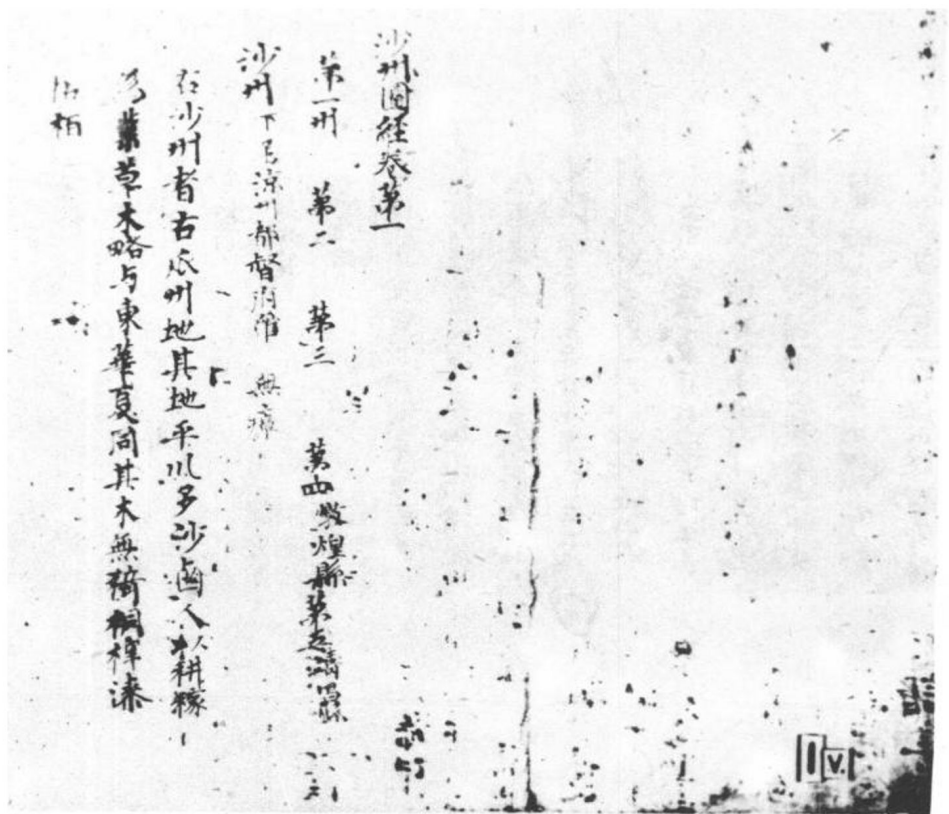 沙州圖經卷第一
第一州 第二 第三 第四燉煌縣第五壽昌縣
沙州下屬涼州都督府管 無瘴
右沙州者古瓜州地其地平川多沙鹵人以耕稼
為業草木略与東華夏同其木無椅桐梓漆
栢
1 V.